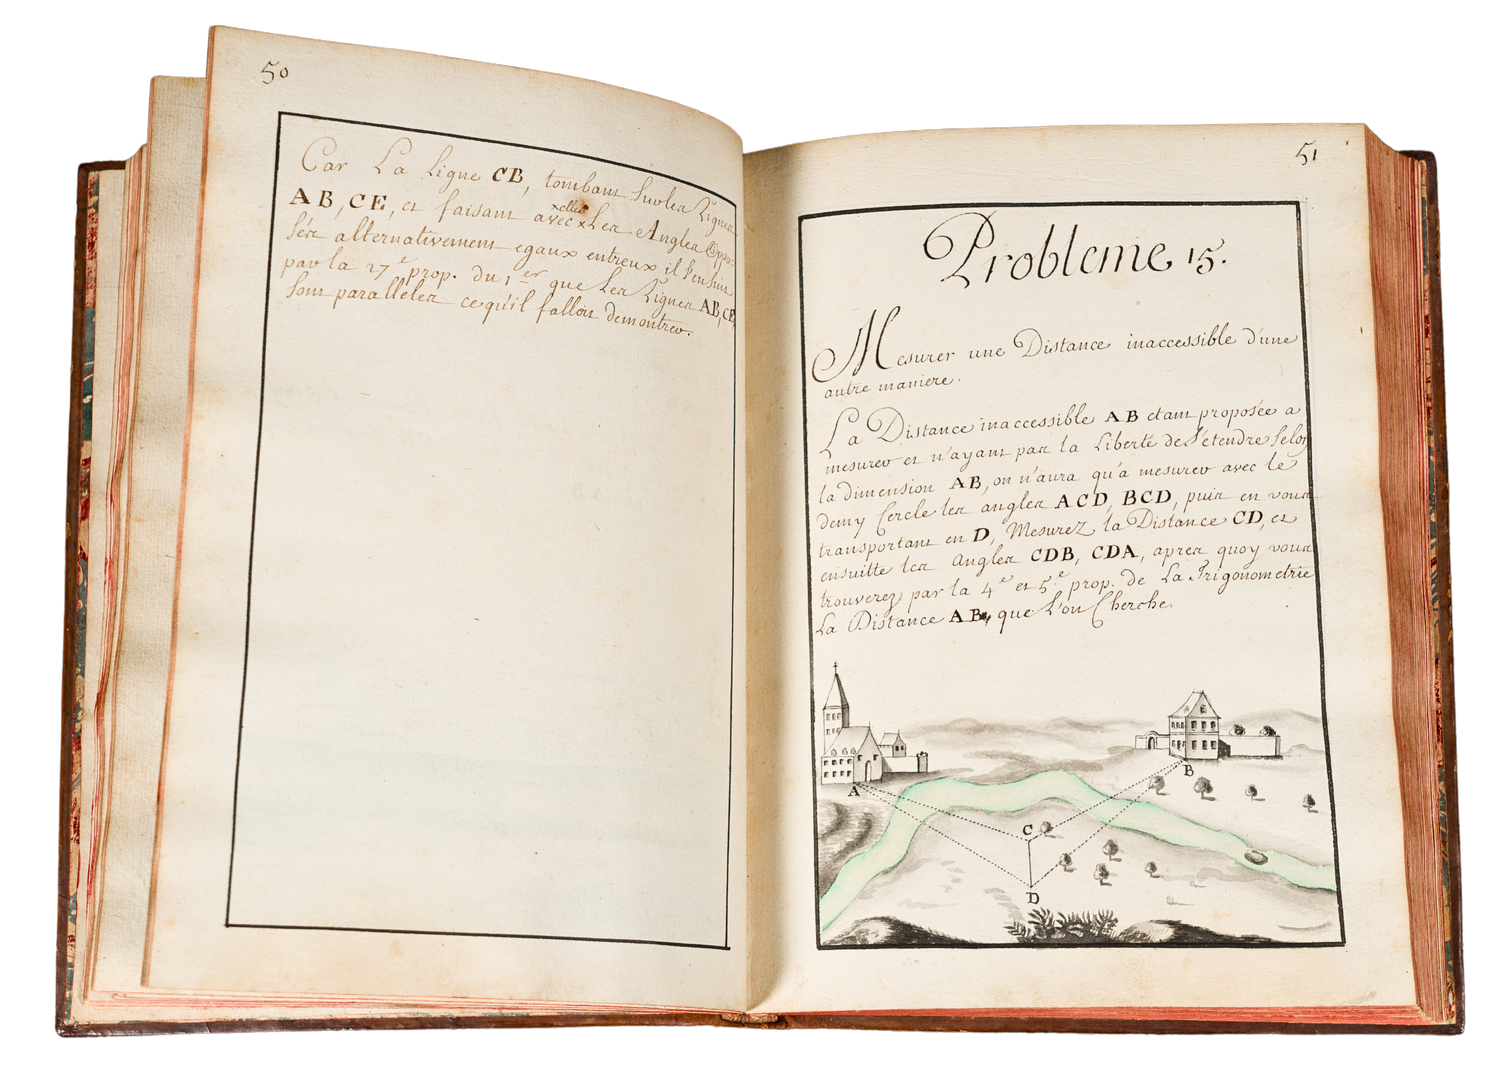 50
Car La Ligne CB, tombant Sur les Lignes
AB, CE, et faisant avec x Les Angles Oppo-
xelles
sés alternativement egaux entreux il s'ensuit
par la 27e prop. du 1er que Les Lignes AB, CE,
Sont paralleles ce qu'il falloit demontrer.
51
Probleme 15.
Mesurer une Distance inaccessible d'une
autre maniere.
La Distance inaccessible AB etant proposée a
mesurer et n'ayant pas la Liberté de S'étendre selon
la dimension AB, on n'aura qu'a mesurer avec le
demy Cercle les angles ACD, BCD, puis en vous
transportant en D, Mesurez la Distance CD, et
ensuitte les Angles CDB, CDA, apres quoy vous
trouverez par la 4e et 5e prop. de La Trigonometrie
La Distance AB, que L'on Cherche.
A
B
C
D